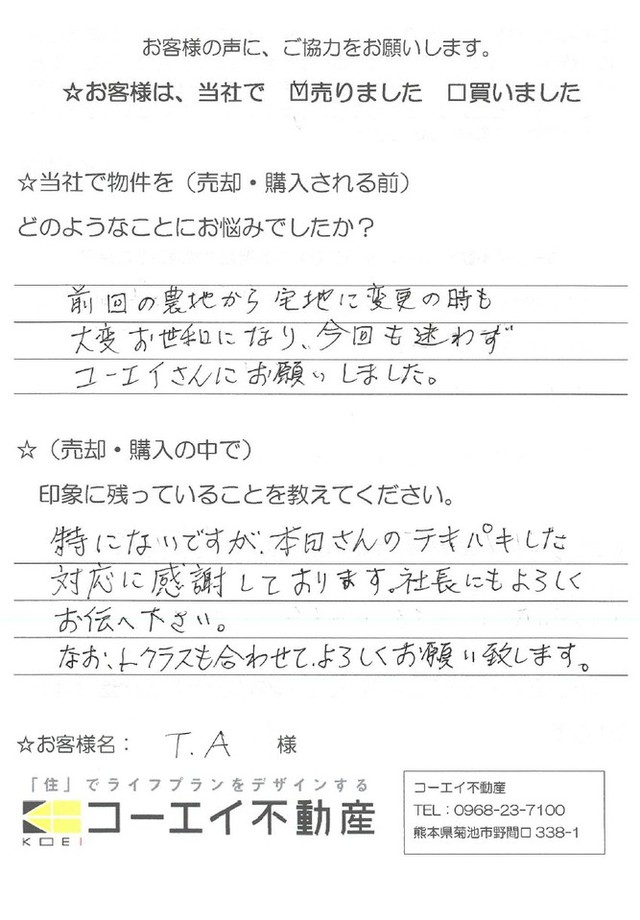 お客様の声に、ご協力をお願いします。
☆お客様は、当社で ☑売りました □買いました
☆当社で物件を(売却・購入される前)
どのようなことにお悩みでしたか?
前回の農地から宅地に変更の時も
大変お世和になり、今回も迷わず
コーエイさんにお願いしました。
☆(売却・購入の中で)
印象に残っていることを教えてください。
特にないですが、本田さんのテキパキした
対応に感謝しております。社長にもよろしく
お伝へ下さい。
なお、トクラスも合わせて、よろしくお願い致します。
☆お客様名: T.A 様
「住」でライフプランをデザインする
KOEI コーエイ不動産
コーエイ不動産
TEL:0968-23-7100
熊本県菊池市野間口338-1